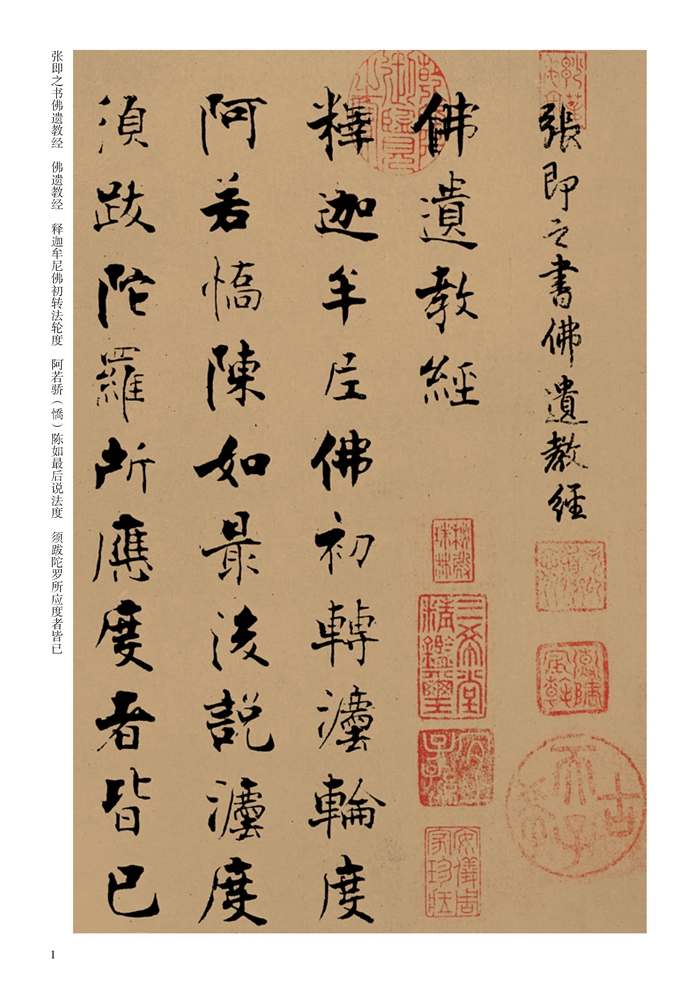 張即之書佛遺教經
佛遺教經
釋迦牟尼佛初轉灋輪度
阿若憍陳如最後說灋度
須跋陀羅所應度者皆已
三希堂精鑑璽
宜子孫
安儀周家珍藏
张即之书佛遗教经 佛遗教经 释迦牟尼佛初转法轮度 阿若骄（憍）陈如最后说法度 须跋陀罗所应度者皆已
1